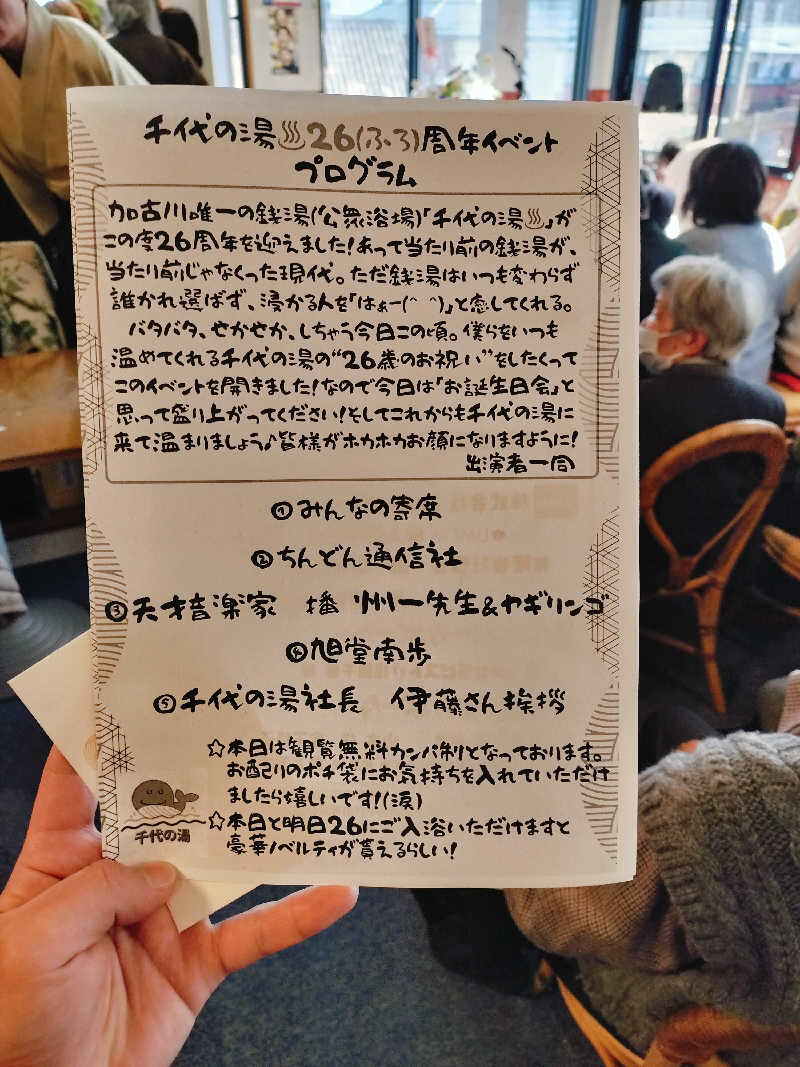 千代の湯♨26(ふろ)周年イベント
プログラム
加古川唯一の銭湯(公衆浴場)「千代の湯♨」が
この度26周年を迎えました!あって当たり前の銭湯が、
当たり前じゃなくった現代。ただ銭湯はいつも変わらず
誰かれ選ばず、浸かる人を「はぁー(^ ^)」と癒してくれる。
バタバタ、せかせか、しちゃう今日この頃。僕らをいつも
温めてくれる千代の湯の"26歳のお祝い"をしたくって
このイベントを開きました!なので今日は「お誕生日会」と
思って盛り上がってください!そしてこれからも千代の湯に
来て温まりましょう♪皆様がホカホカお顔になりますように!
出演者一同
①みんなの寄席
②ちんどん通信社
③天才音楽家 播州一先生&ヤギリンゴ
④旭堂南歩
⑤千代の湯社長 伊藤さん挨拶
☆本日は観覧無料カンパ制となっております。
お配りのポチ袋にお気持ちを入れていただけ
ましたら嬉しいです!(涙)
☆本日と明日26にご入浴いただけますと
豪華ノベルティが貰えるらしい!
千代の湯